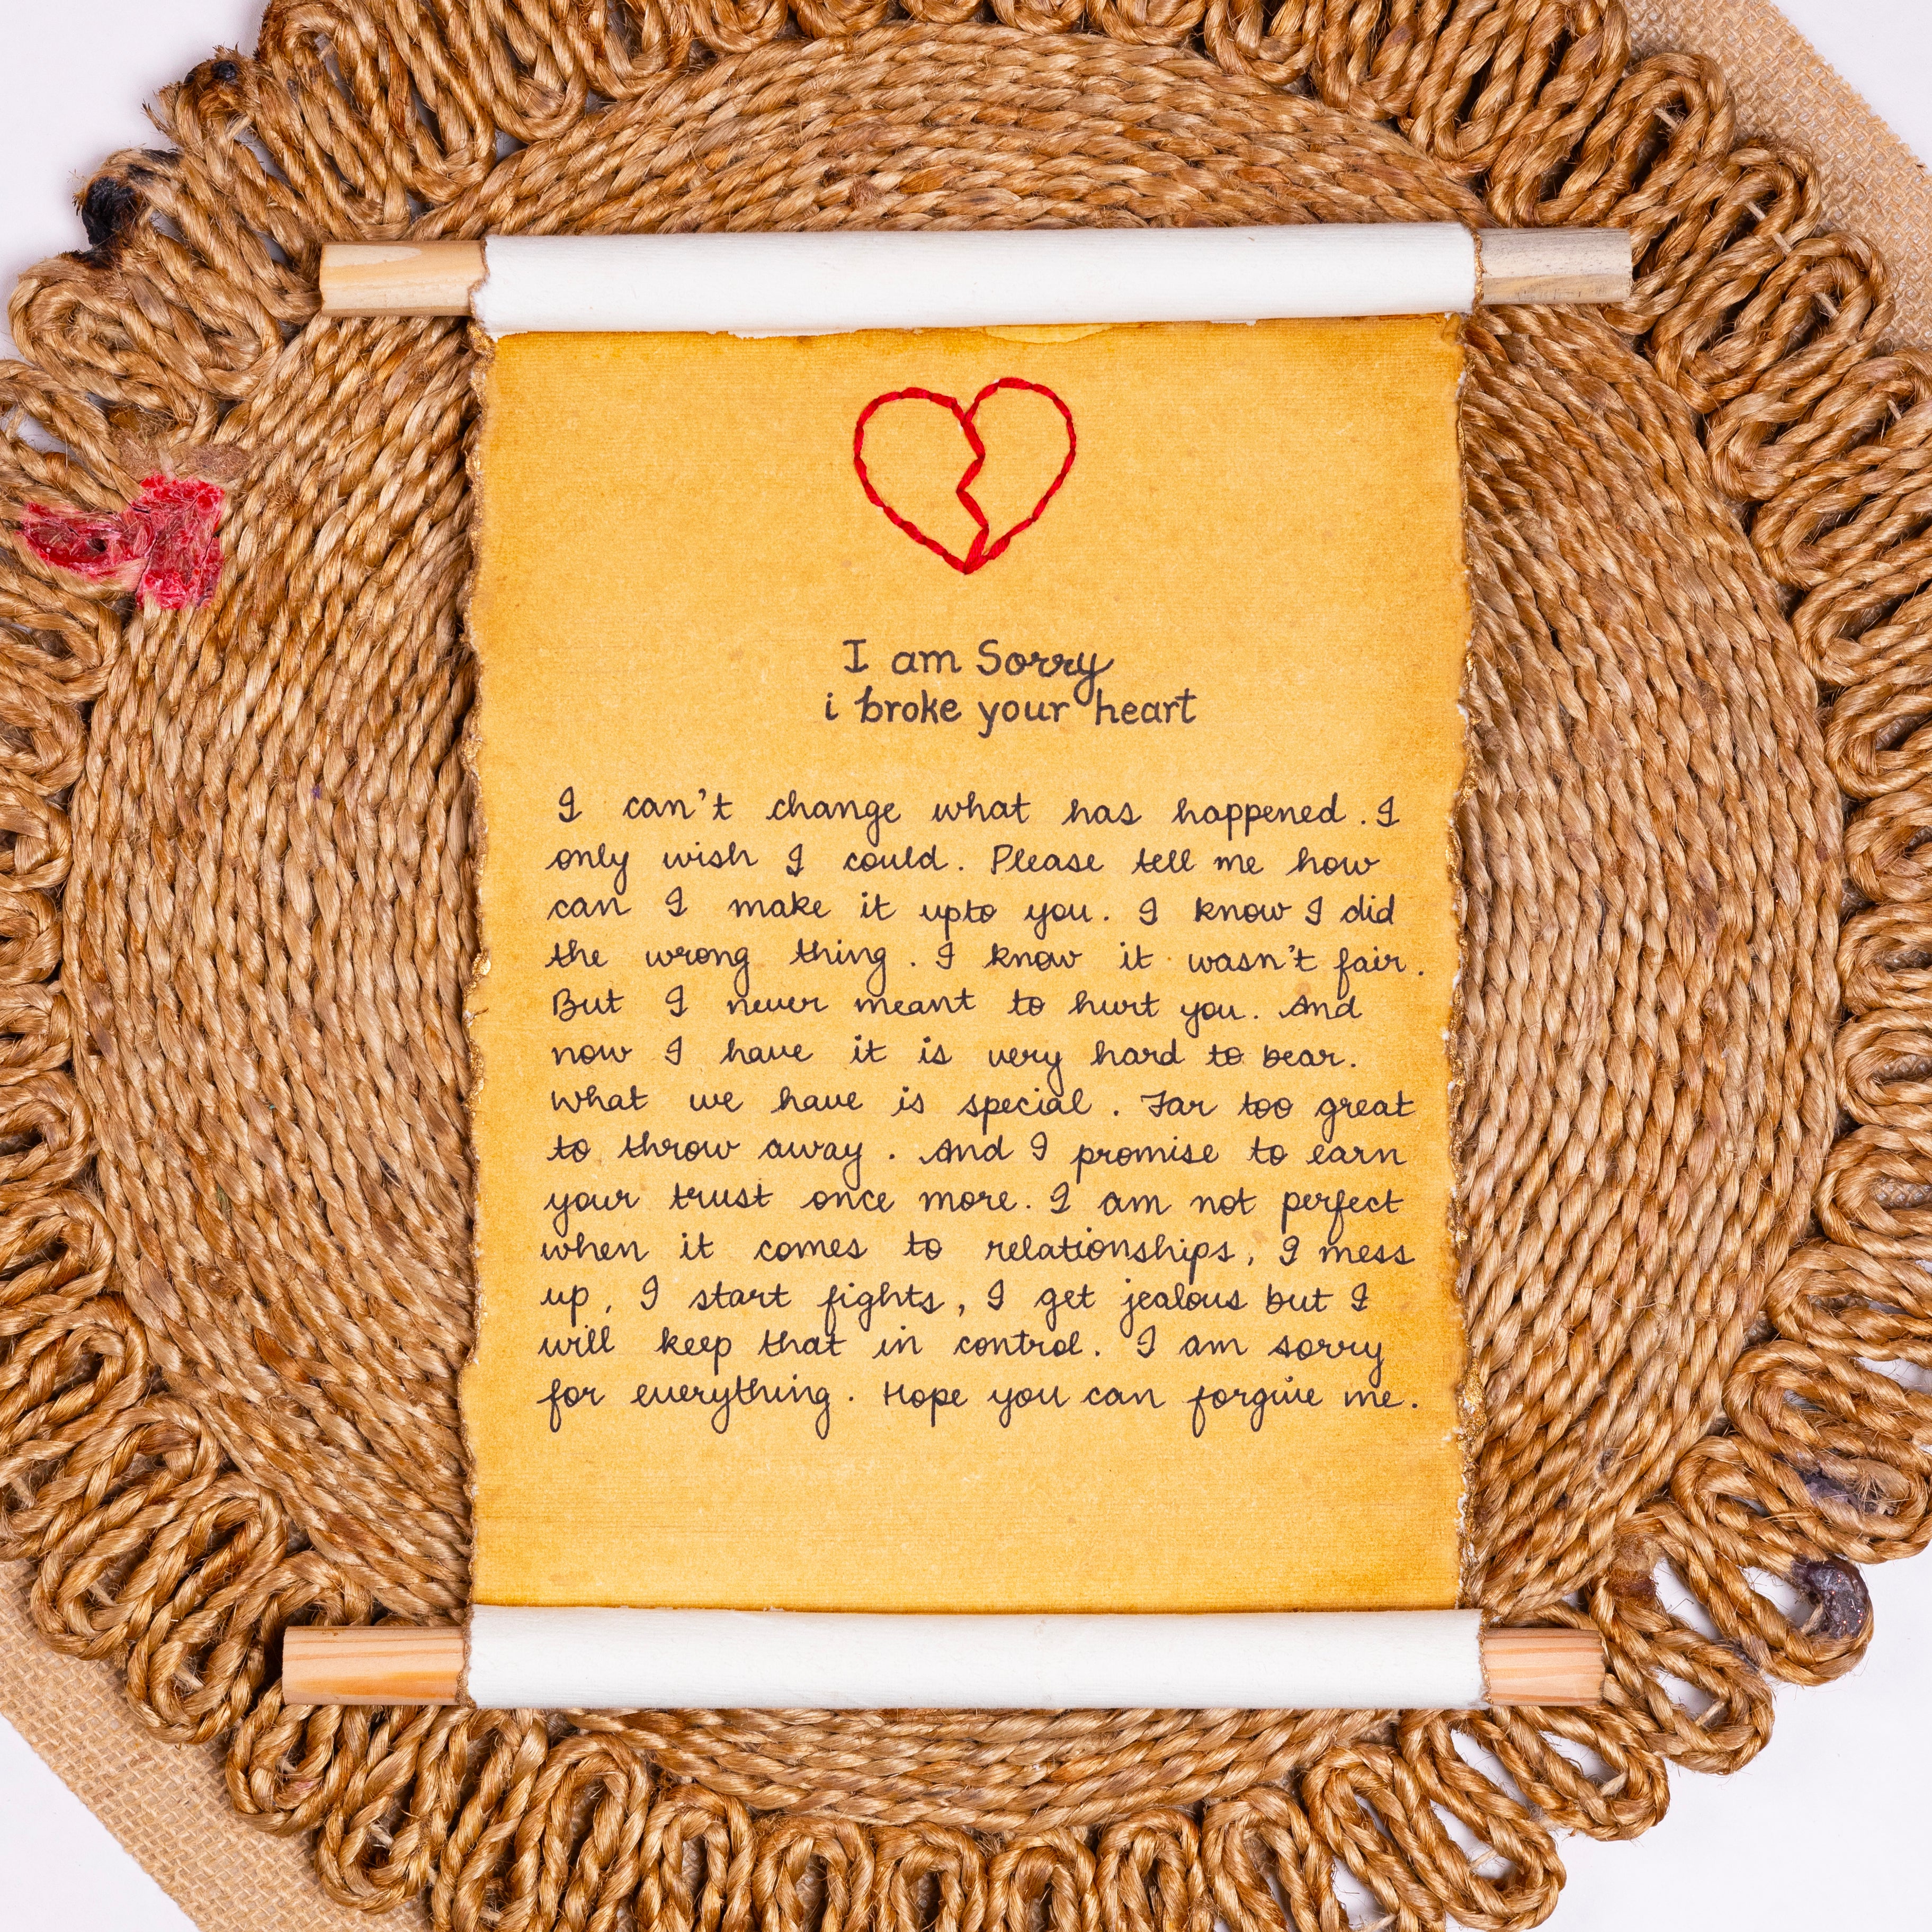 I am Sorry
i broke your heart
I can't change what has happened. I
only wish I could. Please tell me how
can I make it upto you. I know I did
the wrong thing. I know it wasn't fair.
But I never meant to hurt you. And
now I have it is very hard to bear.
what we have is special. Far too great
to throw away. And I promise to earn
your trust once more. I am not perfect
when it comes to relationships, I mess
up, I start fights, I get jealous but I
will keep that in control. I am sorry
for everything. Hope you can forgive me.